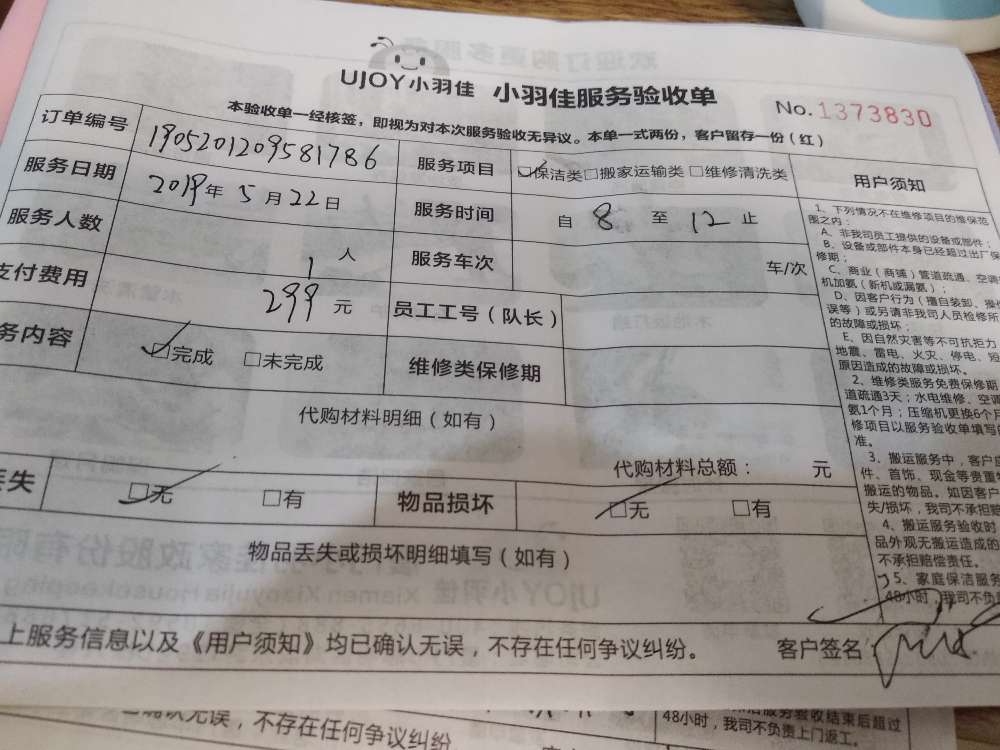 UJOY小羽佳 小羽佳服务验收单
No.1373830
本验收单一经核签，即视为对本次服务验收无异议。本单一式两份，客户留存一份（红）
订单编号 1905201209581786 服务项目 ☑保洁类□搬家运输类□维修清洗类 用户须知
服务日期 2019年5月22日 服务时间 自 8 至 12 止
服务人数 1 人 服务车次 车/次
支付费用 299 元 员工工号（队长）
务内容 ☑完成 □未完成 维修类保修期
代购材料明细（如有）
代购材料总额： 元
丢失 ☑无 □有 物品损坏 ☑无 □有
物品丢失或损坏明细填写（如有）
上服务信息以及《用户须知》均已确认无误，不存在任何争议纠纷。 客户签名：
1、下列情况不在维修项目的维保范
围之内：
A、非我司员工提供的设备或部件；
B、设备或部件本身已经超过出厂保
修期；
C、商业（商铺）管道疏通、空调
机加氨（新机或漏氨）；
D、因客户行为（擅自装卸、操作
误等）或另请非我司人员检修所
的故障或损坏；
E、因自然灾害等不可抗拒力
地震、雷电、火灾、停电、短
原因造成的故障或损坏。
2、维修类服务免费保修期
道疏通3天；水电维修、空调
氨1个月；压缩机更换6个月
修项目以服务验收单填写的
准。
3、搬运服务中，客户应
件、首饰、现金等贵重物
搬运的物品。如因客户
失/损坏，我司不承担赔
4、搬运服务验收时
品外观无搬运造成的
不承担赔偿责任。
5、家庭保洁服务
48小时，我司不负
确认无误，不存在任何争议纠纷
服务验收结束后超过
48小时，我司不负责上门返工。